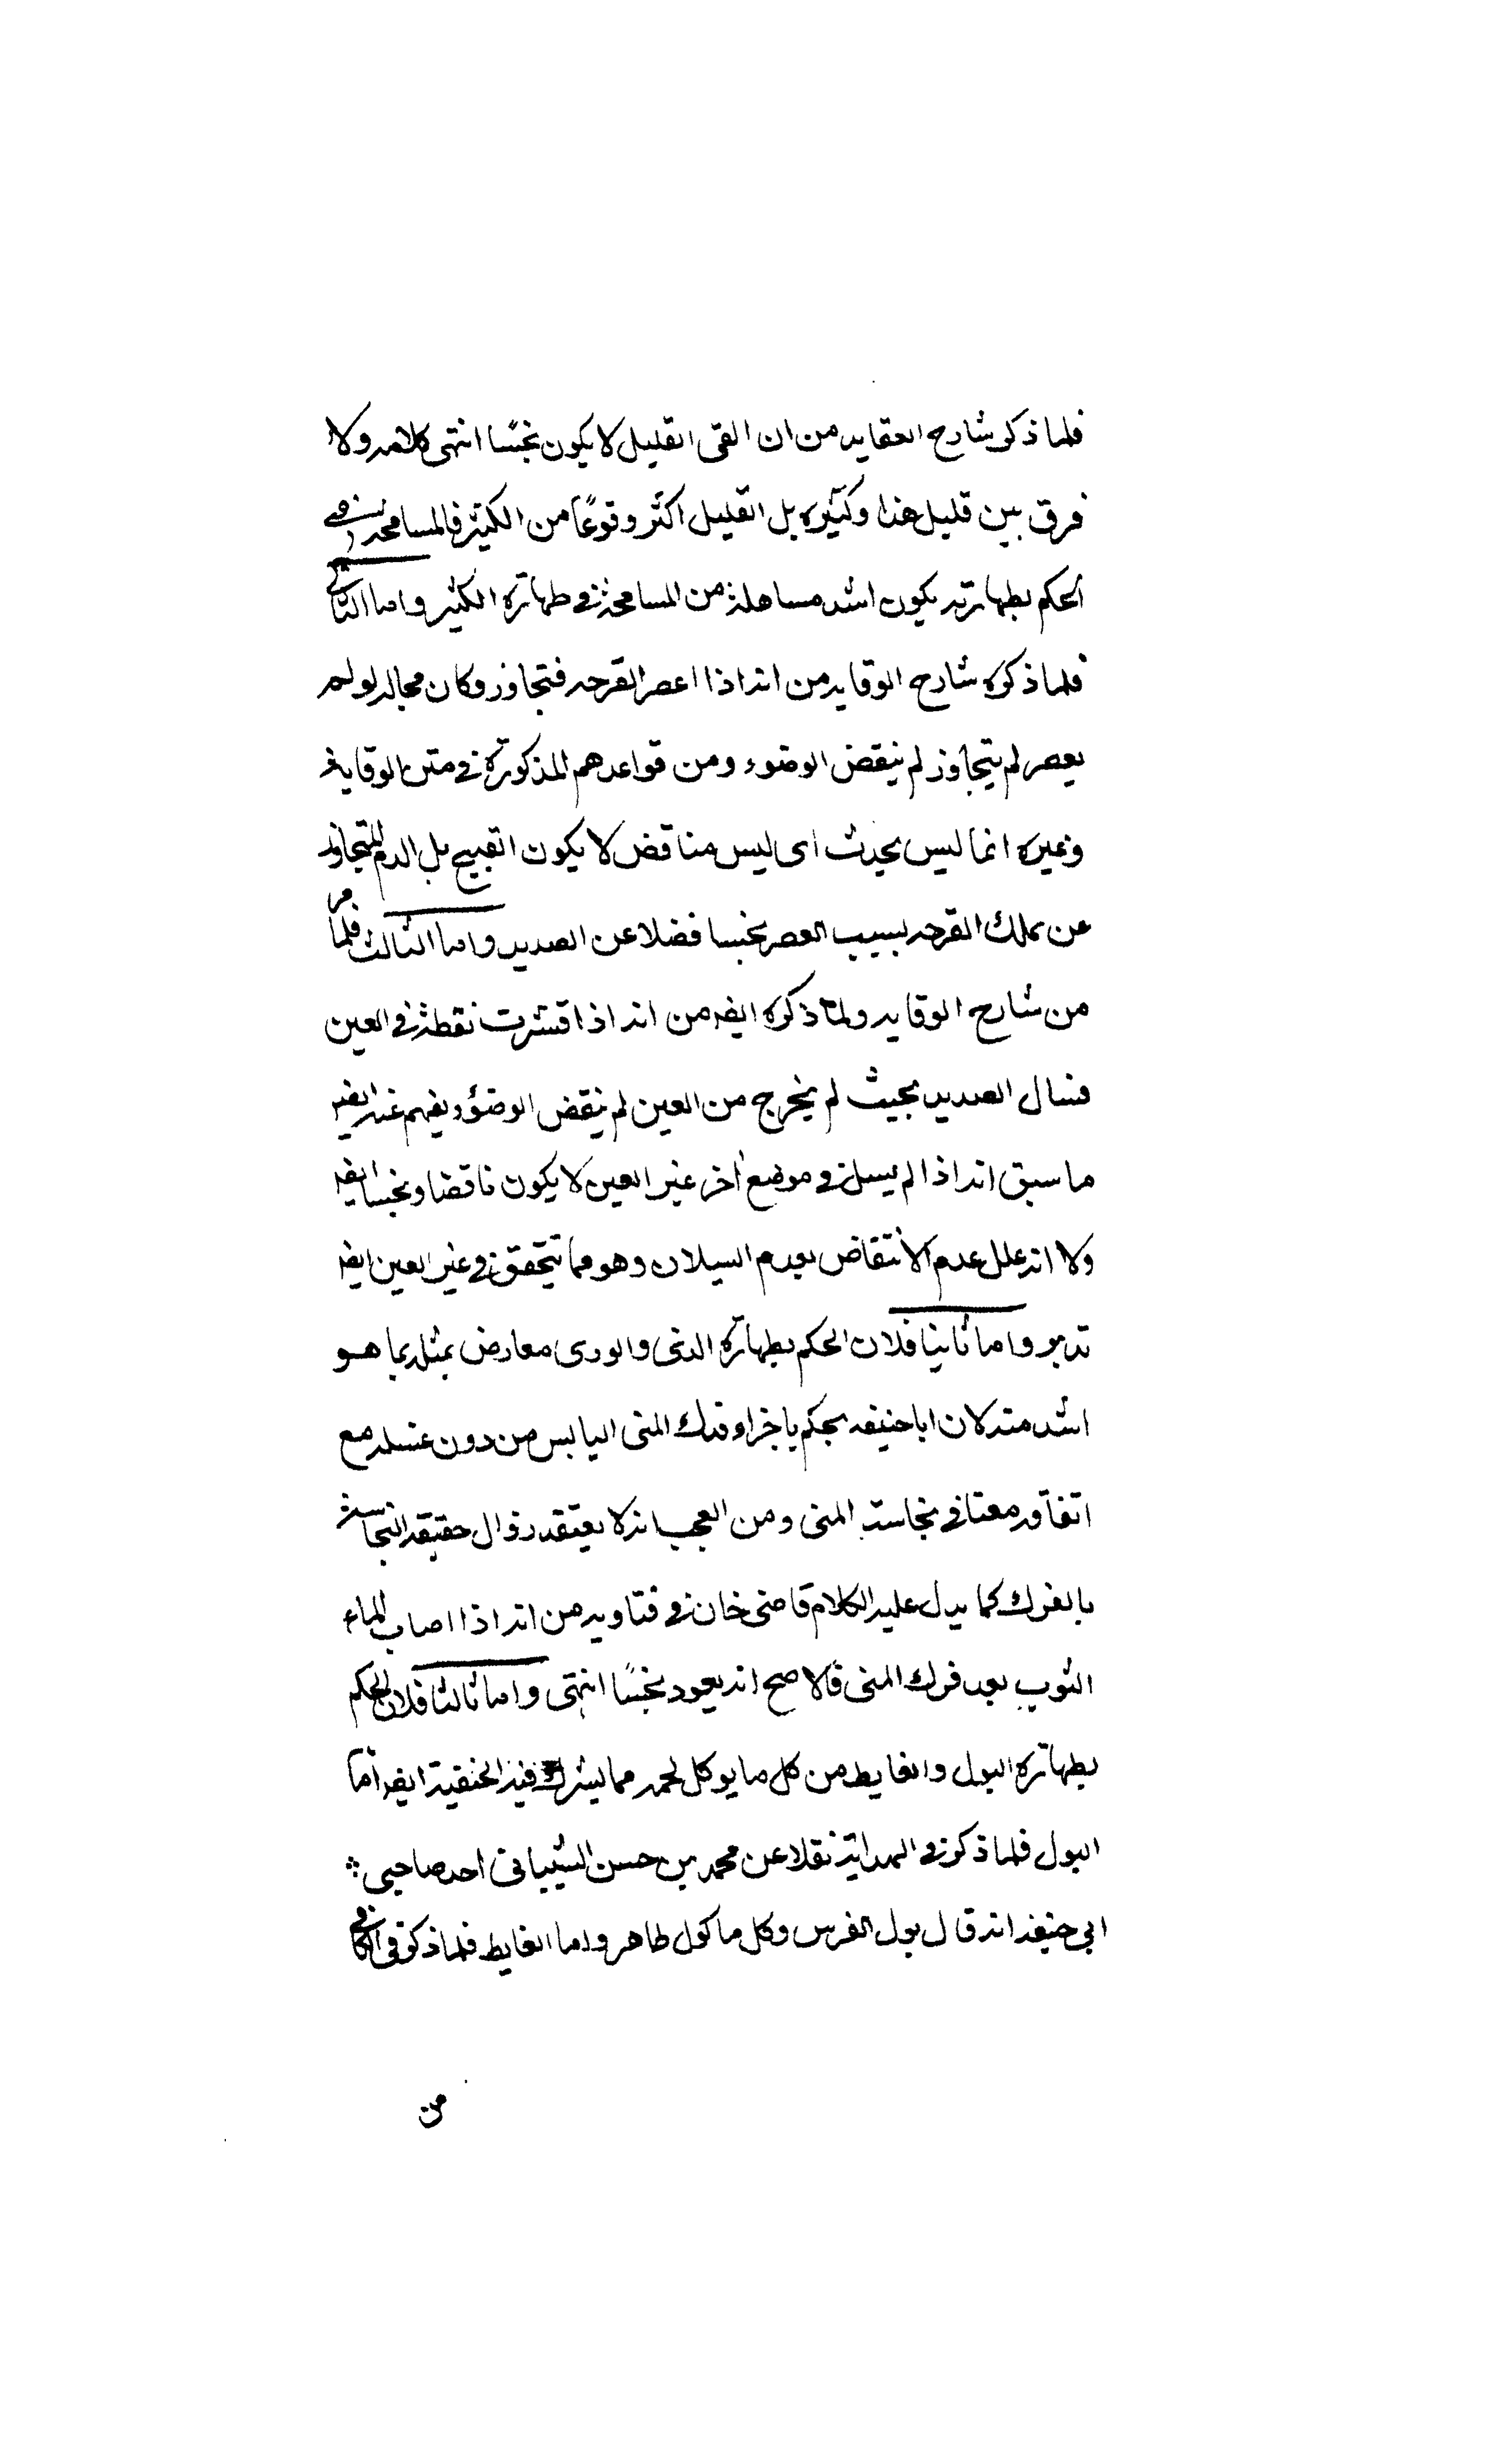 فلما ذكر شارح العقايد من ان القى القليل لا يكون نجسًا انتهى كلامه ولا
فرق بين قليل هذا وكثيره بل القليل اكثر وقوعًا من الكثير فالمسامحة في
الحكم بطهارته يكون اشد مساهلة من المسامحة في طهارة الكثير واما الثاني
فلما ذكره شارح الوقايه من انه اذا اعصر القرحه فتجاوز وكان بحاله لو لم
يعصر لم يتجاوز لم ينقض الوضوء ومن قواعدهم المذكورة في متن الوقاية
وغيره انما ليس بحدث اى ليس مناقض لا يكون القبيح بل الدم المتجاوز
عن تلك القرحه بسبب العصر نجسا فضلا عن الصديد واما الثالث فلما مر
من شارح الوقايه ولما ذكره ايضه من انه اذا قشرت نقطة في العين
فسال الصديد بحيث لم يخرج من العين لم ينقض الوضوء ويفهم عنه ايضه
ما سبق انه اذا لم يسل في موضع اخر غير العين لا يكون ناقضا ونجسا ايضه
ولا انه علل عدم الانتقاض بعدم السيلان وهو مما يتحقق في غير العين ايضه
تدبر واما ثانيا فلان الحكم بطهارة المذى والودى معارض بمثله بما هو
اشد منه لان ابا حنيفه يحكم باجزاء فرك المنى اليابس من دون غسله مع
اتفاقه معنا في نجاسة المنى ومن العجب انه لا يعتقد زوال حقيقه النجاسة
بالفرك كما يدل عليه الكلام قاضى خان في فتاويه من انه اذا اصاب الماء
الثوب بعد فرك المنى فالاصح انه يعود نجسًا انتهى واما ثالثا فلان الحكم
بطهارة البول والغايط من كل ما يوكل لحمه مما يشرك فيه الحنفية ايضه اما
البول فلما ذكر في الهداية نقلا عن محمد بن حسن الشيبانى احد صاحبى
ابى حنيفة انه قال بول الفرس وكل ماكول طاهر واما الغايط فلما ذكر في الكافي
من